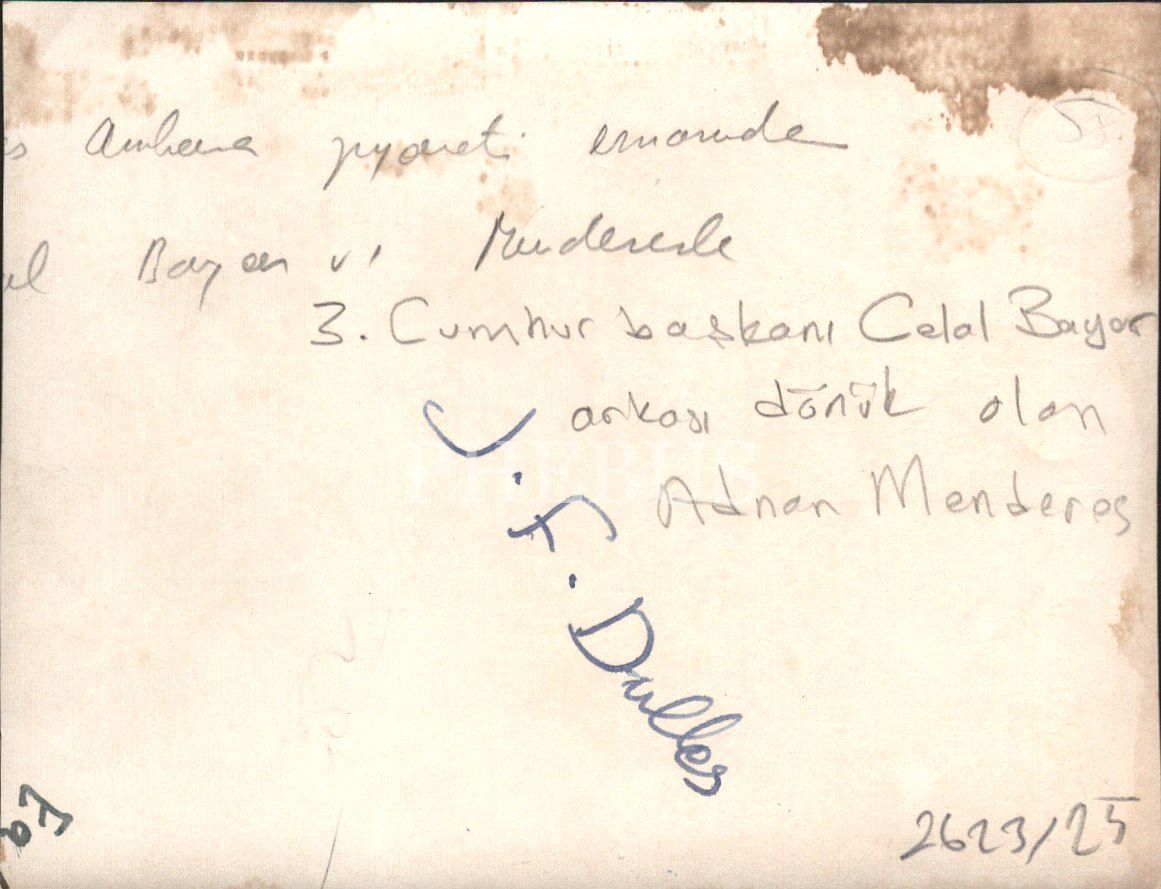 s Ankara ziyareti esnasında
al Bayar ve Menderesle
3. Cumhurbaşkanı Celal Bayar
arkası dönük olan
Adnan Menderes
J. F. Dulles
PHEBUS
2623/25